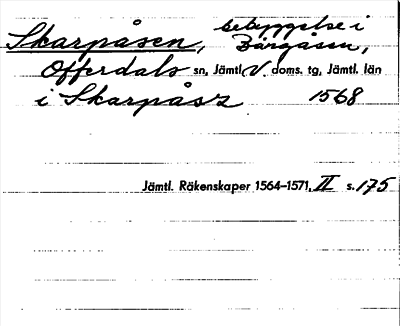 Skarpåsen, bebyggelse i
Bångåsen,
Offerdals sn, Jämtl. V. doms. tg, Jämtl. län
i Skarpåsz 1568
Jämtl. Räkenskaper 1564–1571, II s. 175